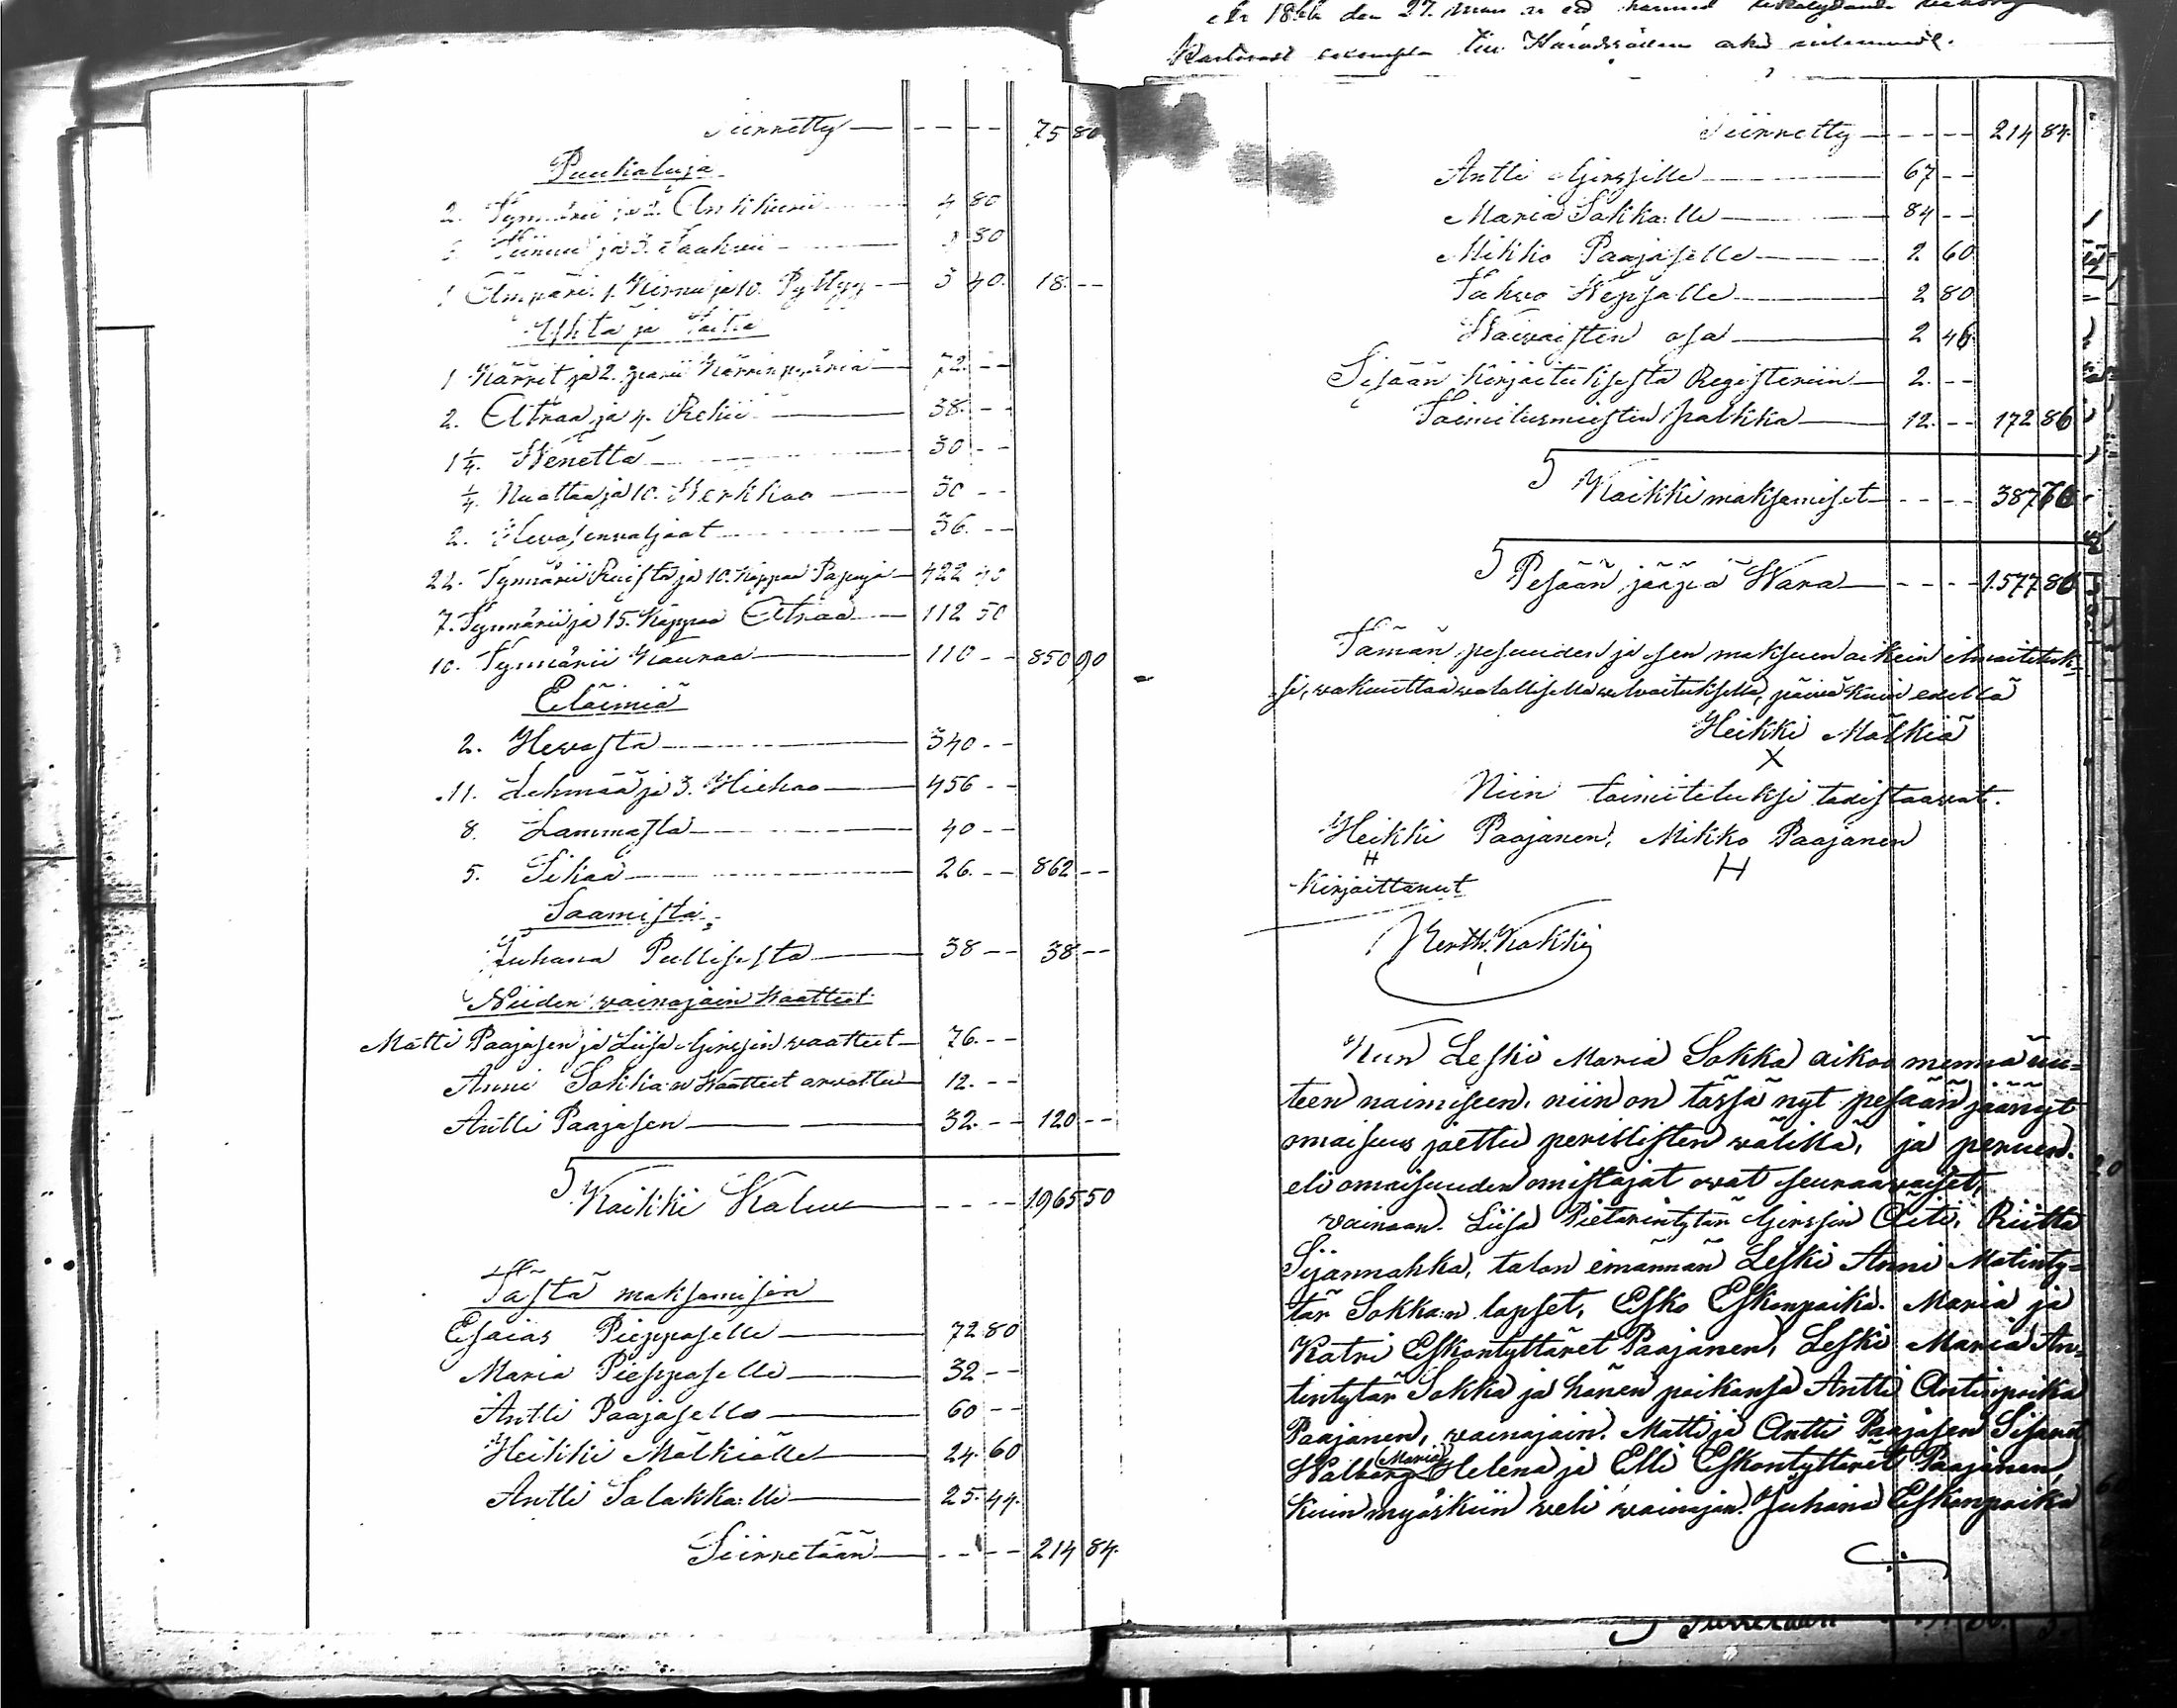 den 27.
Siirretty — 75 80
Puukaluja
2. Tynnörii ja 2. Ankkurii — 4 80
Saavii — 80
1 Ämpäri. 1. Kirnu ja 10. Pyttyy — 3 40. 18. --
1 Kärret ja 2. parii Kärrinpyöriä — 72. --
2. Atraa ja 4. Rekii — 38. --
1 1/4. Wenettä — 30 --
1/4. Nuottaa ja 10. Werkkoo — 30 --
2. Hevosenvaljaat — 36. --
22. Tynnörii Ruista ja 10. Kappaa Papuja — 422 40
7. Tynnörii ja 15. Kappaa Otraa — 112 50
10. Tynnörii Kauraa — 110 -- 850 90
Eläimiä
2. Hewosta — 340 --
11. Lehmää ja 3. Hiehoo — 456 --
8. Lammasta — 40 --
5. Sikaa — 26. -- 862 --
Saamista.
Juhana Pullisesta — 38 -- 38 --
Niiden vainajain Waatteet.
Matti Paajasen ja Liisa Girssin vaatteet — 76. --
Anni Sokka:n Waatteet arvattu — 12. --
Antti Paajasen — 32. -- 120 --
Kaikki Kaluu — 1965 50
Tästä maksamisia
Esaias Piepposelle — 72 80
Maria Piepposelle — 32 --
Antti Paajaselle — 60 --
Heikki Mälkiälle — 24. 60
Antti Salakka:lle — 25. 44.
Siirretään — 214 84.
Siirretty — 214 84.
Antti Girssille — 67 --
Maria Sokka:lle — 84 --
Mikko Paajaselle — 2 60
Tahvo Wepsälle — 2 80
Waivaisten osa — 2 46
Sisään kirjoituksesta Registeriin — 2. --
Toimitusmiesten palkka — 12. -- 172 86
Kaikki maksamiset — 387 70
Pesään jääpä Wara — 1577 80
Tämän pesuuden ja sen maksuen oikein ilmoitetuk-
si, vakuuttaa valallisella velvoituksella, päivä kuin edellä
Heikki Mälkiä
X
Niin toimitetuksi todistaavat.
Heikki Paajanen, Mikko Paajanen
H H
Kirjoittanut
Kerth. Kokki
Kun Leski Maria Sokka aikoo mennä uu-
teen naimiseen, niin on tässä nyt pesään jäänyt
omaisuus jaettu perillisten välillä, ja peruen.
eli omaisuuden omistajat ovat seuraavaiset,
vainaan. Liisa Pietarintytär Girssin Äiti, Riitta
Sijannahka, talon emännän Leski Anni Matinty-
tär Sokka:n lapset, Esko Eskonpoika. Maria ja
Katri Eskontyttäret Paajanen, Leski Maria An-
tintytär Sokka ja hänen poikansa Antti Antinpoika
Paajanen, vainajain. Matti ja Antti Paajasen Sisaret
Walborg Maria Helena ja Elli Eskontyttäret Paajanen,
Kuin myöskiin veli vainajan. Juhana Eskonpoika